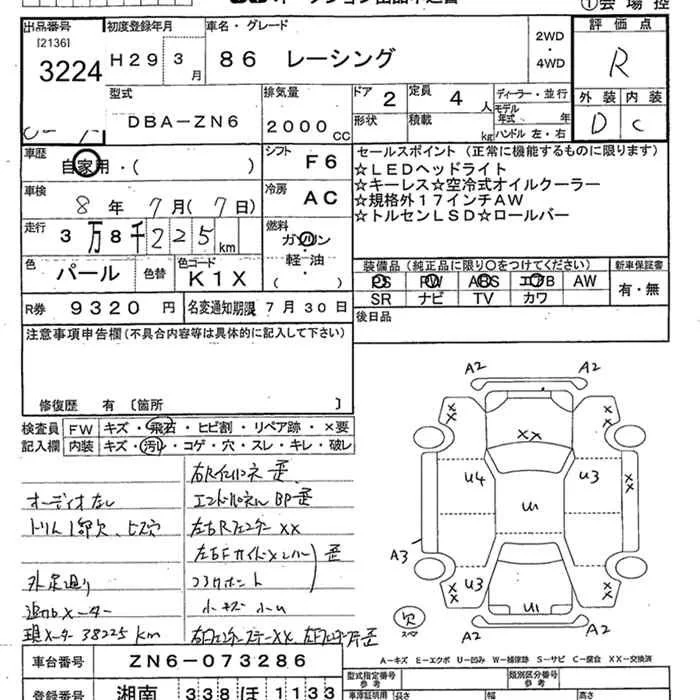 出品番号
[2136]
3224
初度登録年月
H29 3月
車名・グレード
86 レーシング
2WD
・
4WD
評価点
R
外装 内装
D C
型式
DBA-ZN6
排気量
2000 CC
ドア 2
定員 4 人
形状
積載 kg
ディーラー・並行
モデル年式 年
ハンドル 左・右
車歴
自家用・( )
シフト F6
車検
8年 7月(7日)
冷房 AC
走行
3万8千225km
燃料
ガソリン
・
軽・油
( )
色
パール
色替
色コード
K1X
R券 9320円
名変通知期限 7月30日
セールスポイント(正常に機能するものに限ります)
☆LEDヘッドライト
☆キーレス☆空冷式オイルクーラー
☆規格外17インチAW
☆トルセンLSD☆ロールバー
装備品(純正品に限り○をつけてください)
新車保証書
PS PW ABS エアB AW
有・無
SR ナビ TV カワ
後日品
注意事項申告欄(不具合内容等は具体的に記入して下さい)
修復歴 有〔箇所 〕
検査員記入欄
FW キズ・飛石・ヒビ割・リペア跡・×要
内装 キズ・汚れ・コゲ・穴・スレ・キレ・破レ
右Rインパネ歪
オーディオなし
エンドパネルBP歪
トリム1部欠、ビス穴
左右Rフェンダー XX
コアサポート
外品足廻り
小キズ小U
追加メーター
現メーター 38225km
A2 A2
XX
XX
XX
U4
U
U3
XX
A3
U3
XX
XX
U1
欠
A2 A2
A-キズ E-エクボ U-凹み W-補修跡 S-サビ C-腐食 XX-交換済
車台番号 ZN6-073286
登録番号 湘南 338 ほ 1133
型式指定番号
参考
類別区分番号
参考
長さ 幅 高さ